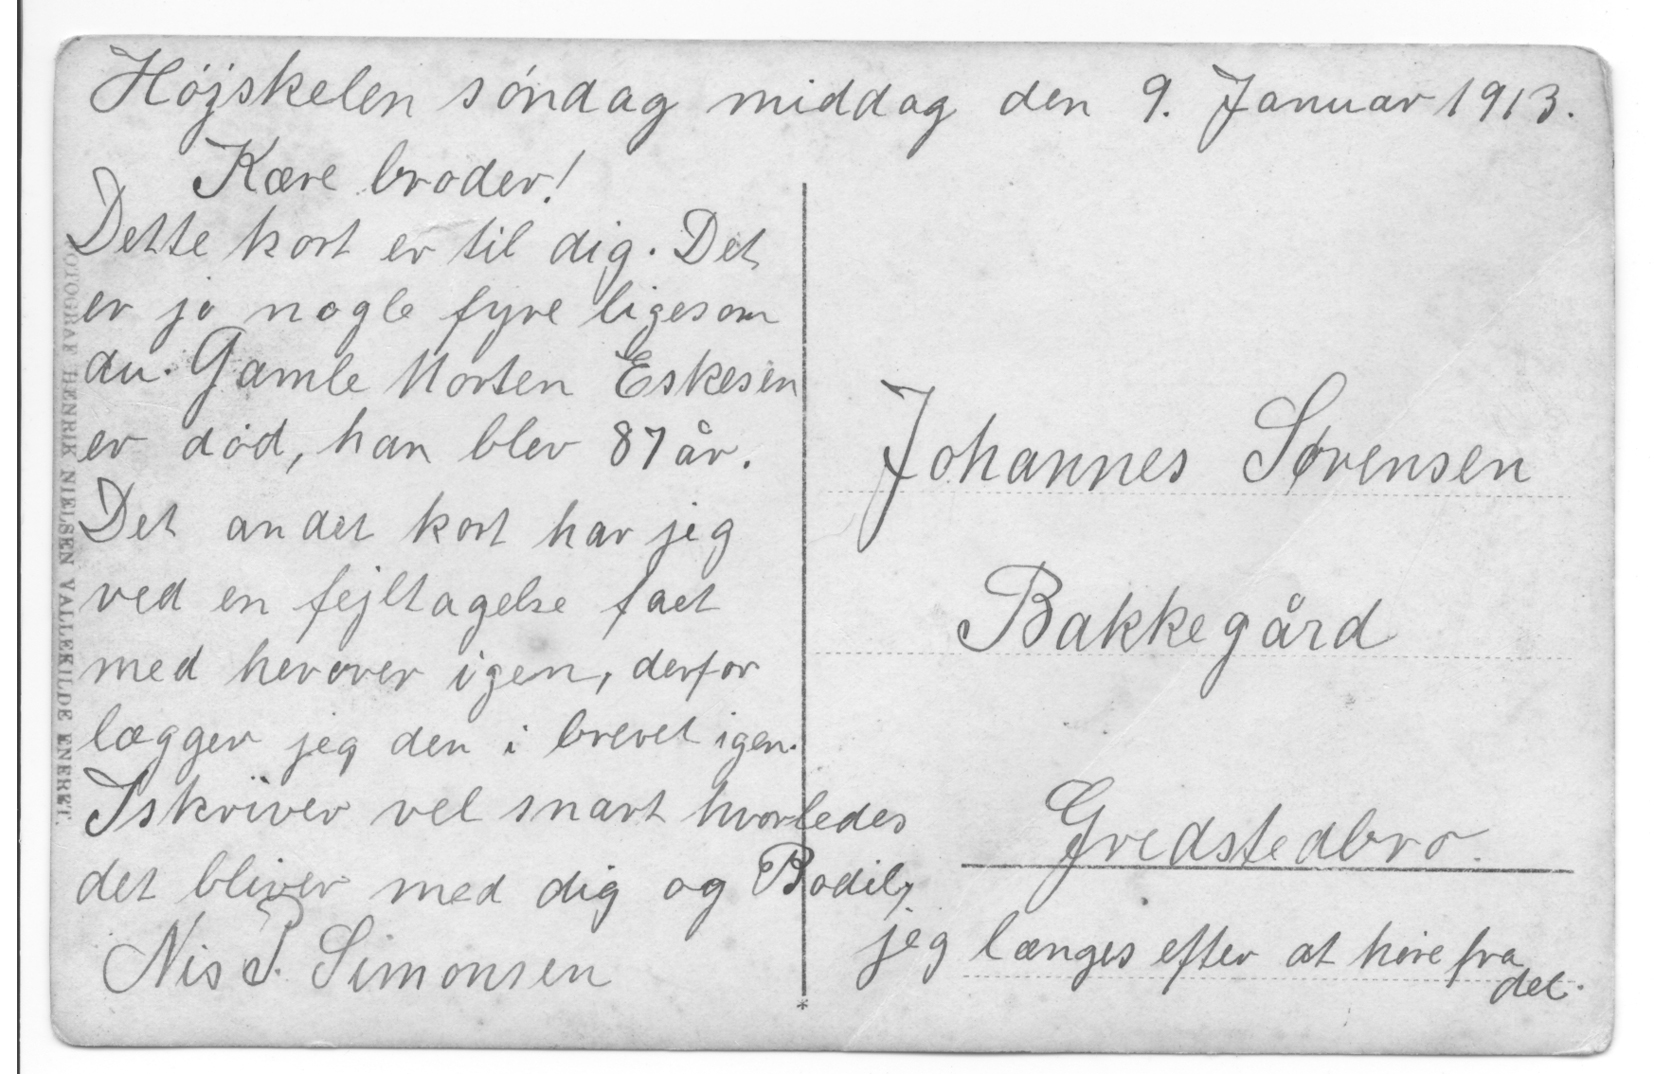 Højskolen søndag middag den 9. Januar 1913.
Kære broder!
Dette kort er til dig. Det
er jo nogle fyre ligesom
du. Gamle Morten Eskesen
er død, han blev 87 år.
Det andet kort har jeg
ved en fejltagelse faet
med herover igen, derfor
lægger jeg den i brevet igen.
I skriver vel snart hvorledes
det bliver med dig og Bodil,
jeg længes efter at høre fra
det.
Nis P. Simonsen
Johannes Sørensen
Bakkegård
Gredstedbro.
FOTOGRAF HENRIK NIELSEN VALLEKILDE ENERET.